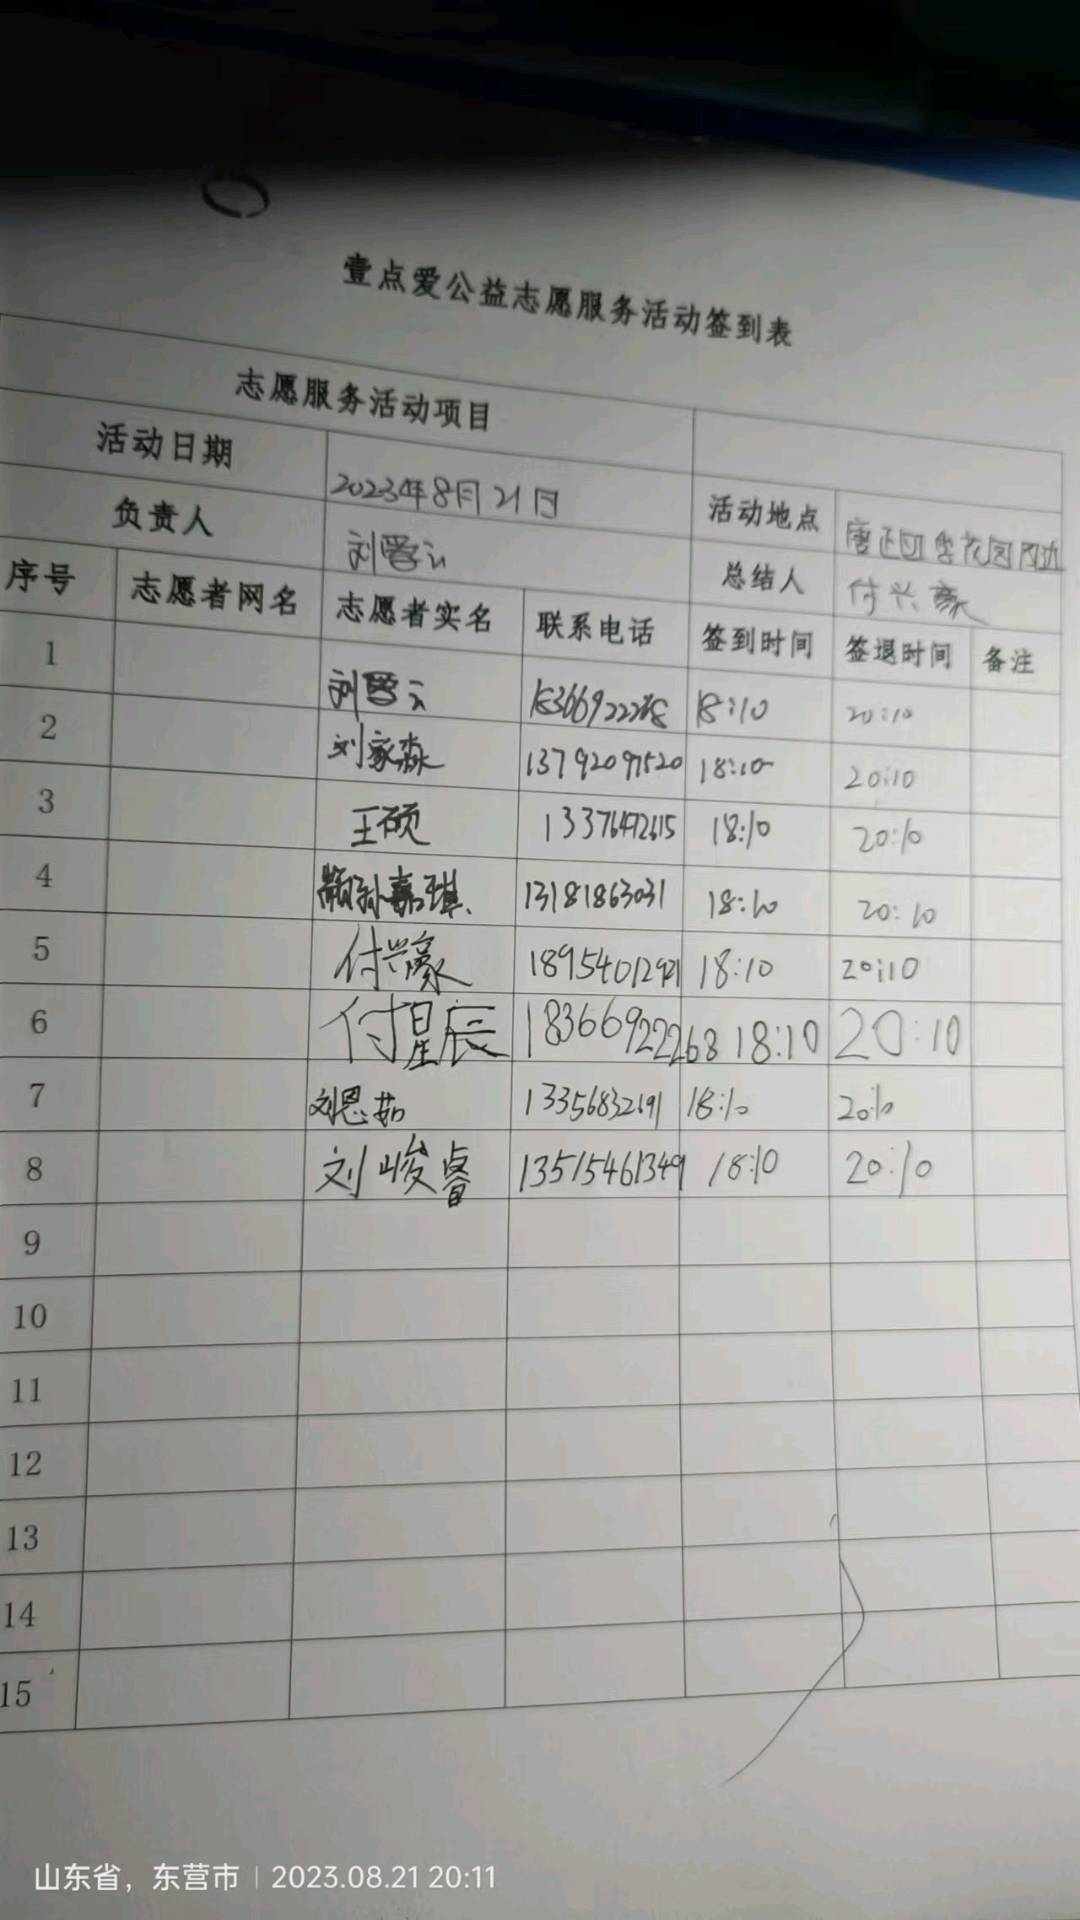 壹点爱公益志愿服务活动签到表
志愿服务活动项目
活动日期 2023年8月21日 活动地点
负责人 刘 总结人 付兴豪
序号 志愿者网名 志愿者实名 联系电话 签到时间 签退时间 备注
1 刘 18:10 20:10
2 刘家淼 13792091520 18:10 20:10
3 王硕 13376472615 18:10 20:10
4 颛孙嘉琪 13181863031 18:10 20:10
5 付兴豪 18954012921 18:10 20:10
6 付星辰 18366922268 18:10 20:10
7 刘恩茹 13356832691 18:10 20:10
8 刘峻睿 13515461349 18:10 20:10
9
10
11
12
13
14
15
山东省，东营市 | 2023.08.21 20:11